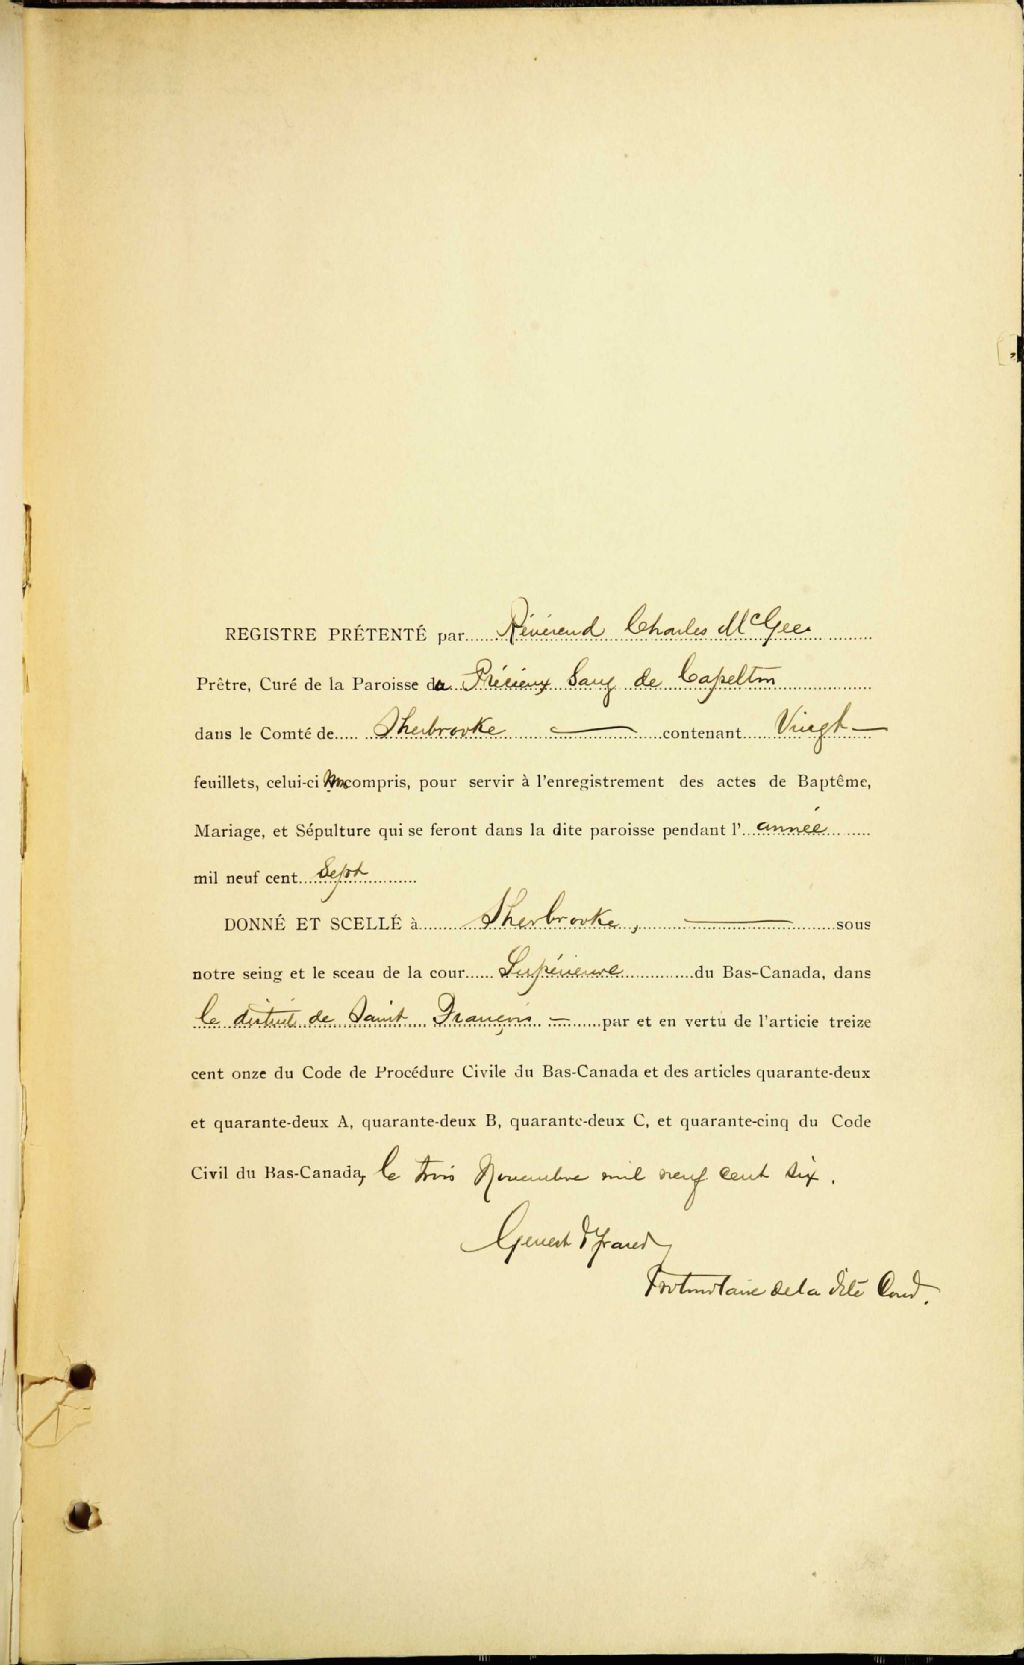 REGISTRE PRÉTENTÉ par Révérend Charles McGee
Prêtre, Curé de la Paroisse du Précieux Sang de Capelton
dans le Comté de Sherbrooke contenant Vingt
feuillets, celui-ci non compris, pour servir à l'enregistrement des actes de Baptême,
Mariage, et Sépulture qui se feront dans la dite paroisse pendant l'année
mil neuf cent Sept
DONNÉ ET SCELLÉ à Sherbrooke, sous
notre seing et le sceau de la cour Supérieure du Bas-Canada, dans
le district de Saint François par et en vertu de l'articie treize
cent onze du Code de Procédure Civile du Bas-Canada et des articles quarante-deux
et quarante-deux A, quarante-deux B, quarante-deux C, et quarante-cinq du Code
Civil du Bas-Canada, le trois Novembre mil neuf cent six.
Protonotaire de la dite Cour.